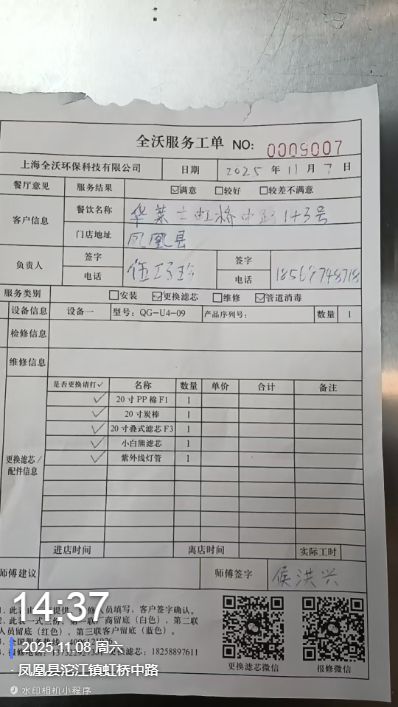 全沃服务工单 NO: 0005007
上海全沃环保科技有限公司 日期 2025 年 11 月 7 日
餐厅意见 服务结果 ☑满意 □较好 □较差不满意
客户信息 餐饮名称 华莱士虹桥中路143号
门店地址 凤凰县
负责人 签字 签字
电话 电话
服务类别 □安装 ☑更换滤芯 □维修 ☑管道消毒
设备信息 设备一 型号: QG-U4-09 产品序列号: 数量 1
检修信息
维修信息
更换滤芯/配件信息
是否更换请打✓ 名称 数量 单价 合计 备注
✓ 20寸PP棉F1 1
✓ 20寸炭棒 1
✓ 20寸叠式滤芯F3 1
✓ 小白熊滤芯 1
✓ 紫外线灯管 1
进店时间 离店时间 实际工时
师傅建议 师傅签字 侯洪兴
填写,客户签字确认。
商留底(白色),第二联
人员留底(红色),第三联客户留底(蓝色)。
18258897611
更换滤芯微信 报修微信
14:37
2025.11.08 周六
凤凰县沱江镇虹桥中路
水印相机小程序